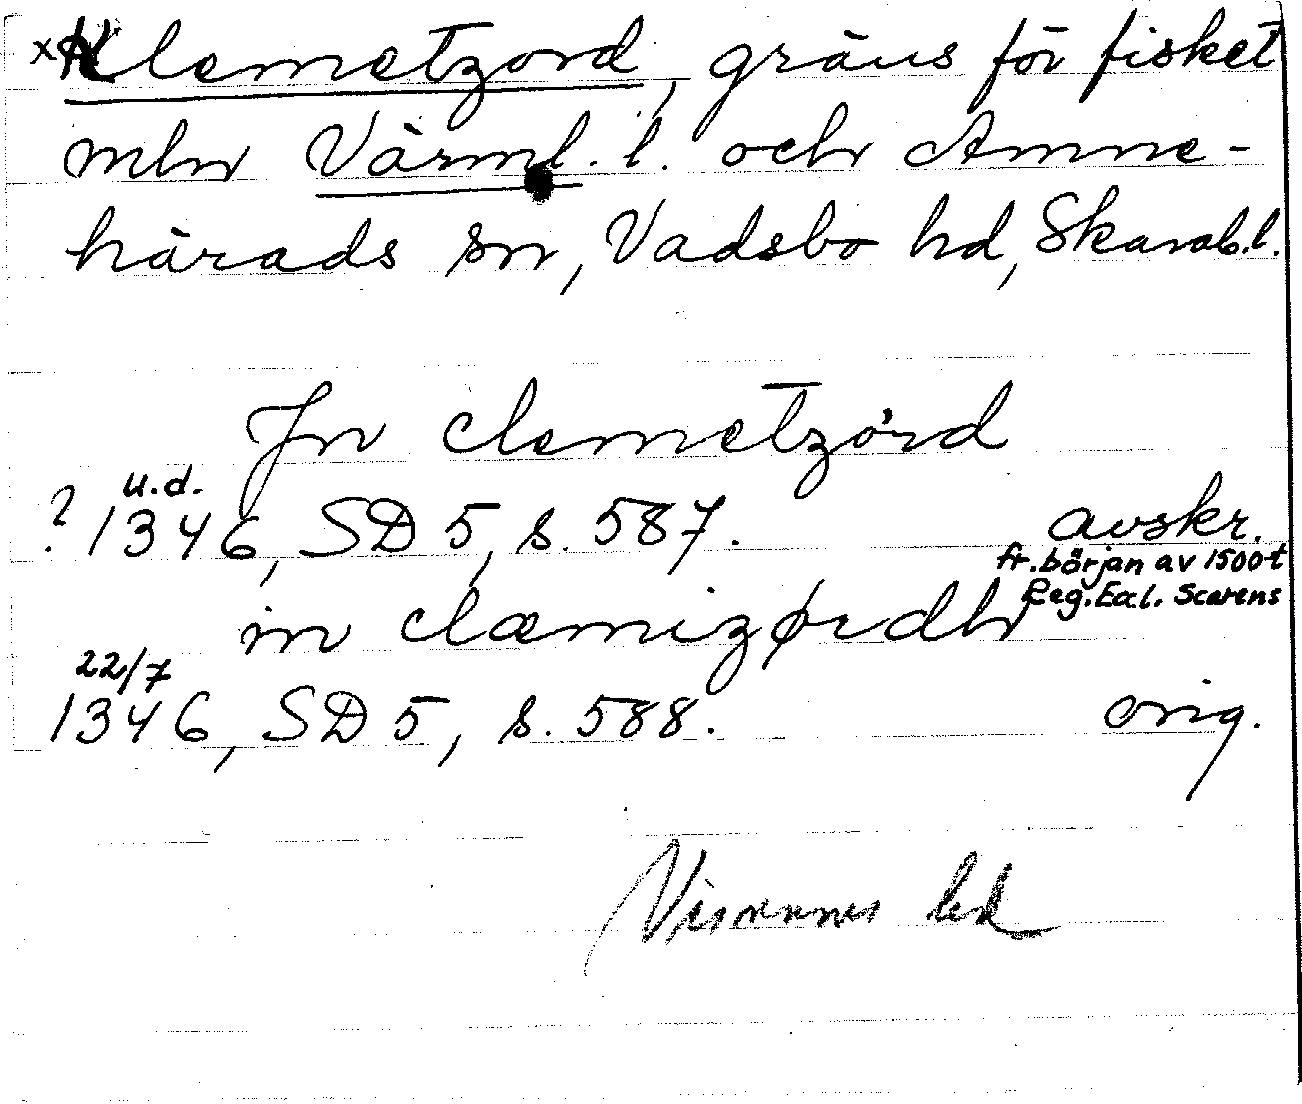 x Klemetzord, gräns för fisket
mln Värml. l. och Amne-
härads sn, Vadsbo hd, Skarab.l.
In clemetzörd
? u.d.
1346, SD 5, s. 587. avskr.
fr. början av 1500-t
Reg. Eccl. Scarens
in clæmizørdh
22/7
1346, SD 5, s. 588. orig.
Visnums hd